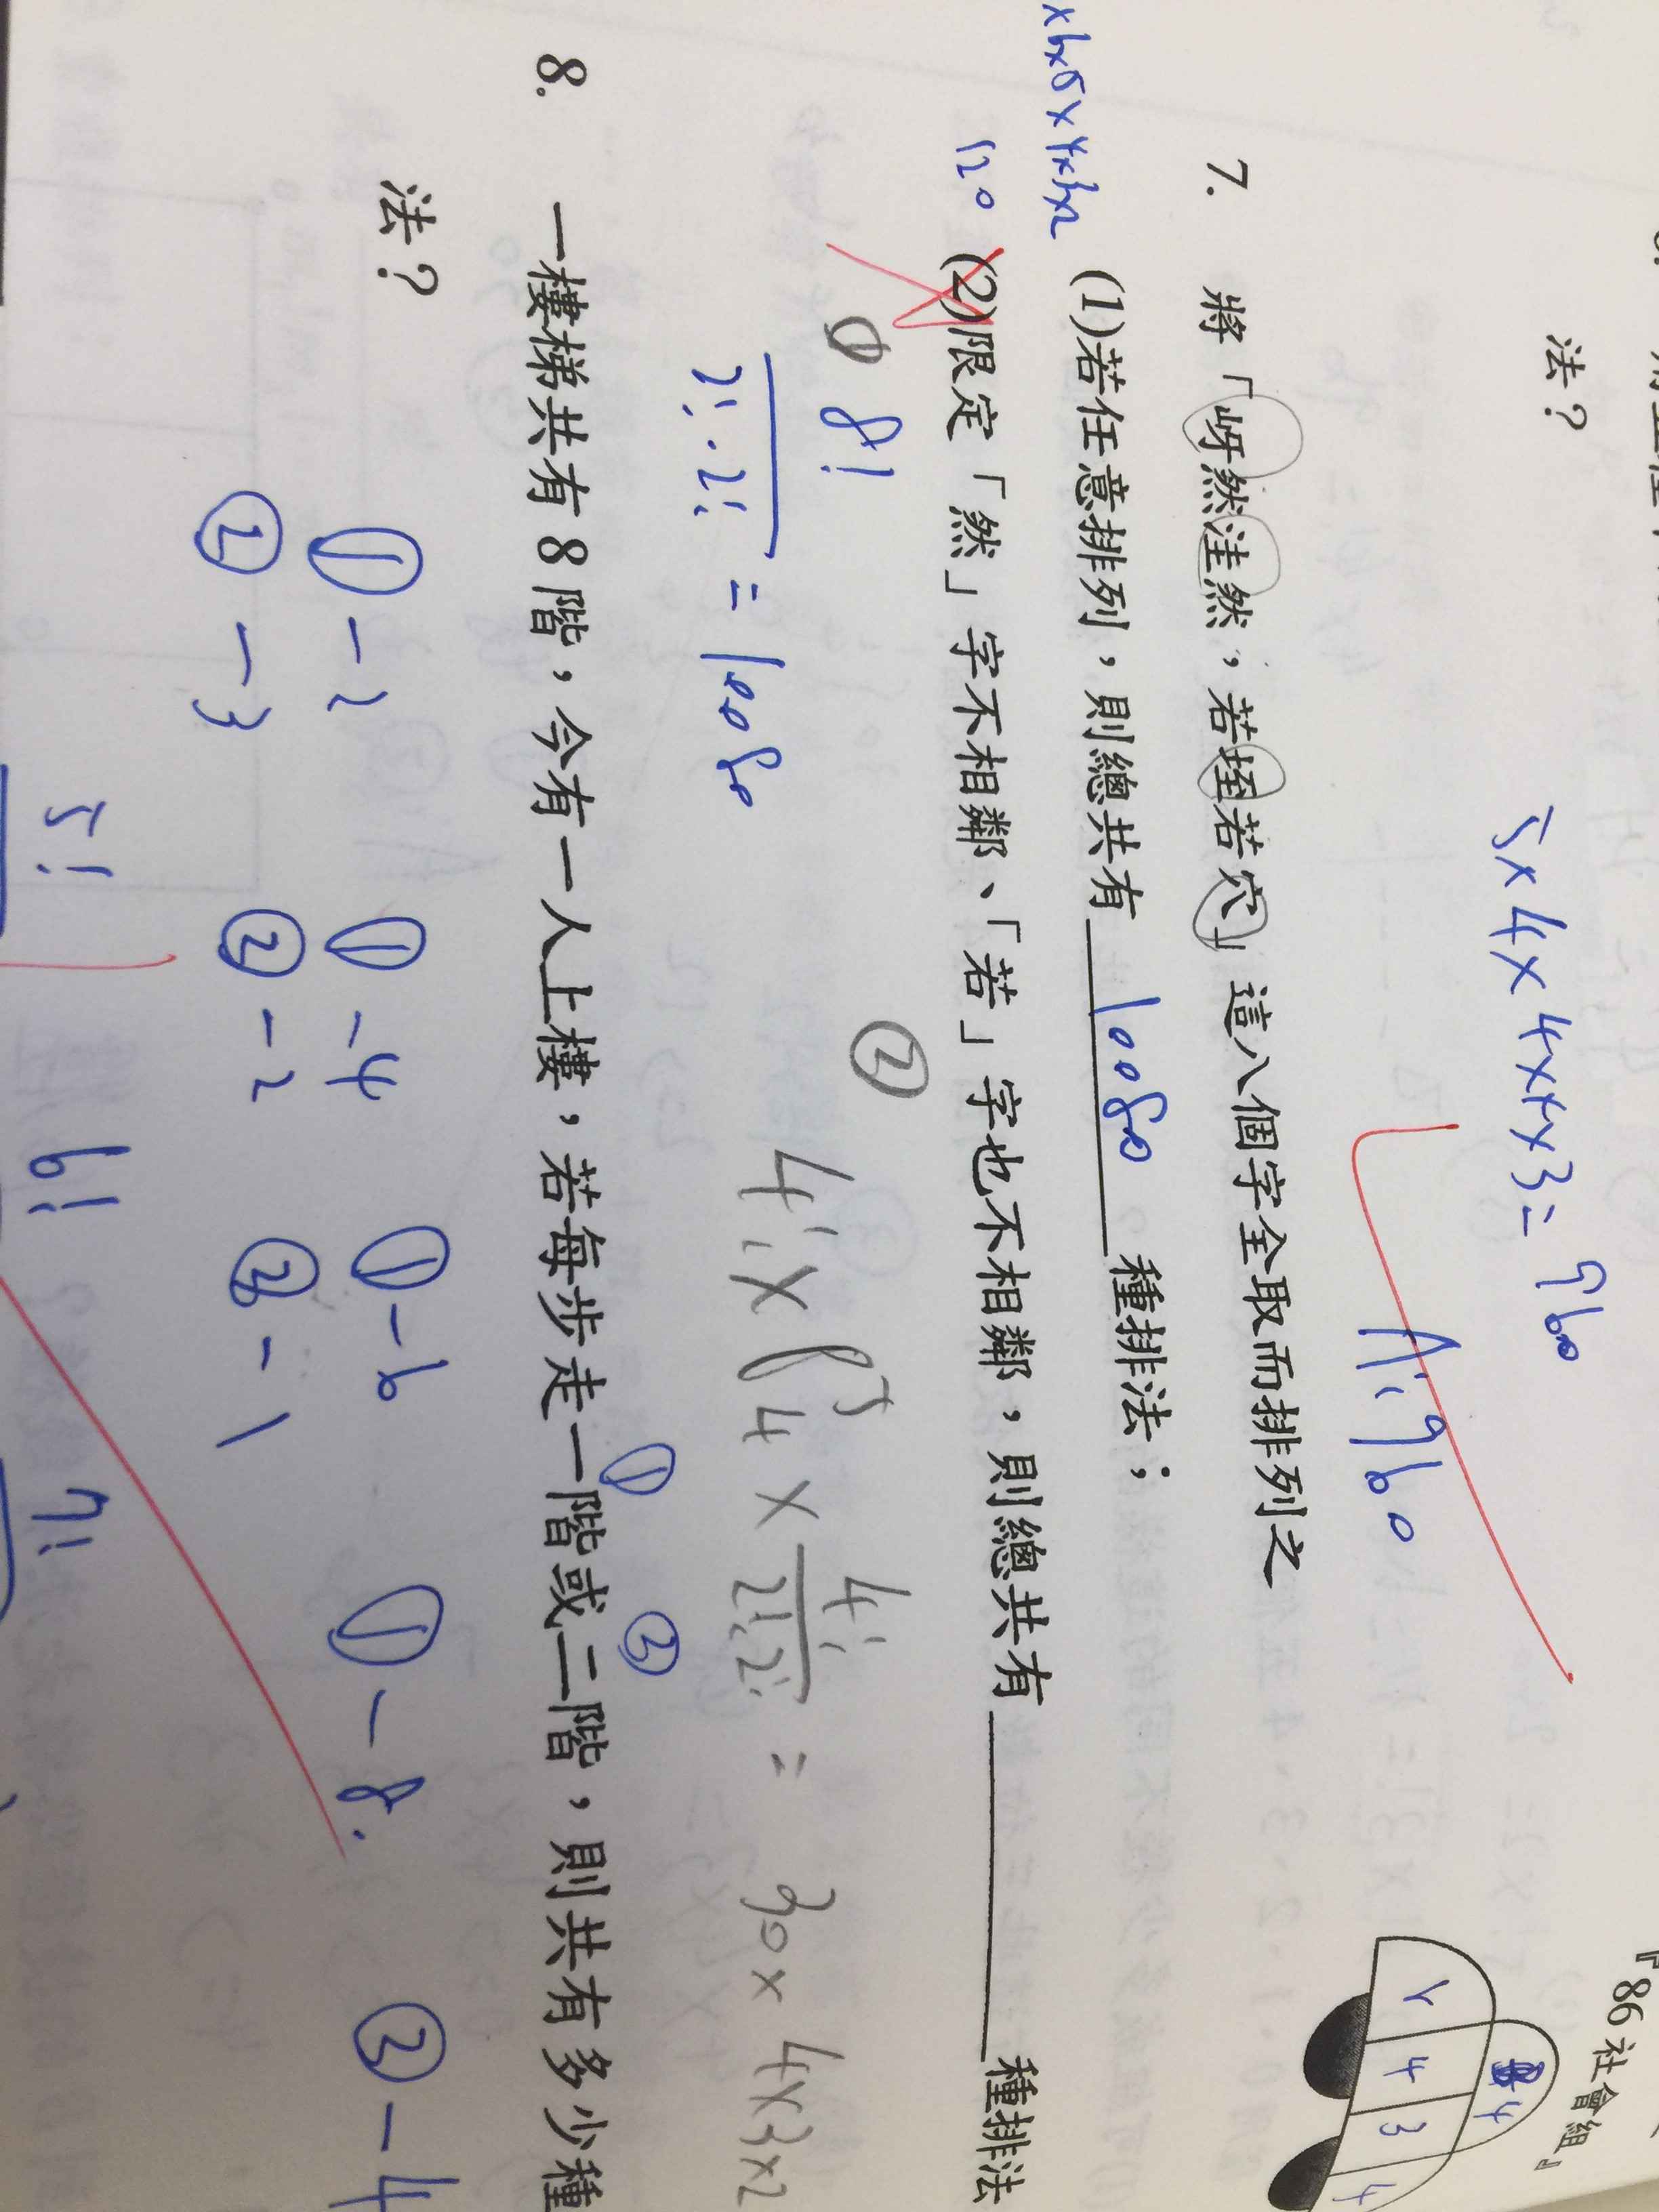 法?
5×4×4×4×3=960
A:960
『86社會組』
4
3
4
4
7. 將「岈然洼然,若垤若穴」這八個字全取而排列之
×6×5×4×3×2
(1)若任意排列,則總共有 10080 種排法;
120
(2)限定「然」字不相鄰、「若」字也不相鄰,則總共有________種排法
① 8!
2!.2! = 10080
②
4! × P⁵4 × 4!/2!2! = 30 × 4×3×2
① ②
8. 一樓梯共有8階,今有一人上樓,若每步走一階或二階,則共有多少種
法?
①-2 ①-4 ①-6 ①-8. ②-4
②-3 ②-2 ②-1
5! 6! 7!